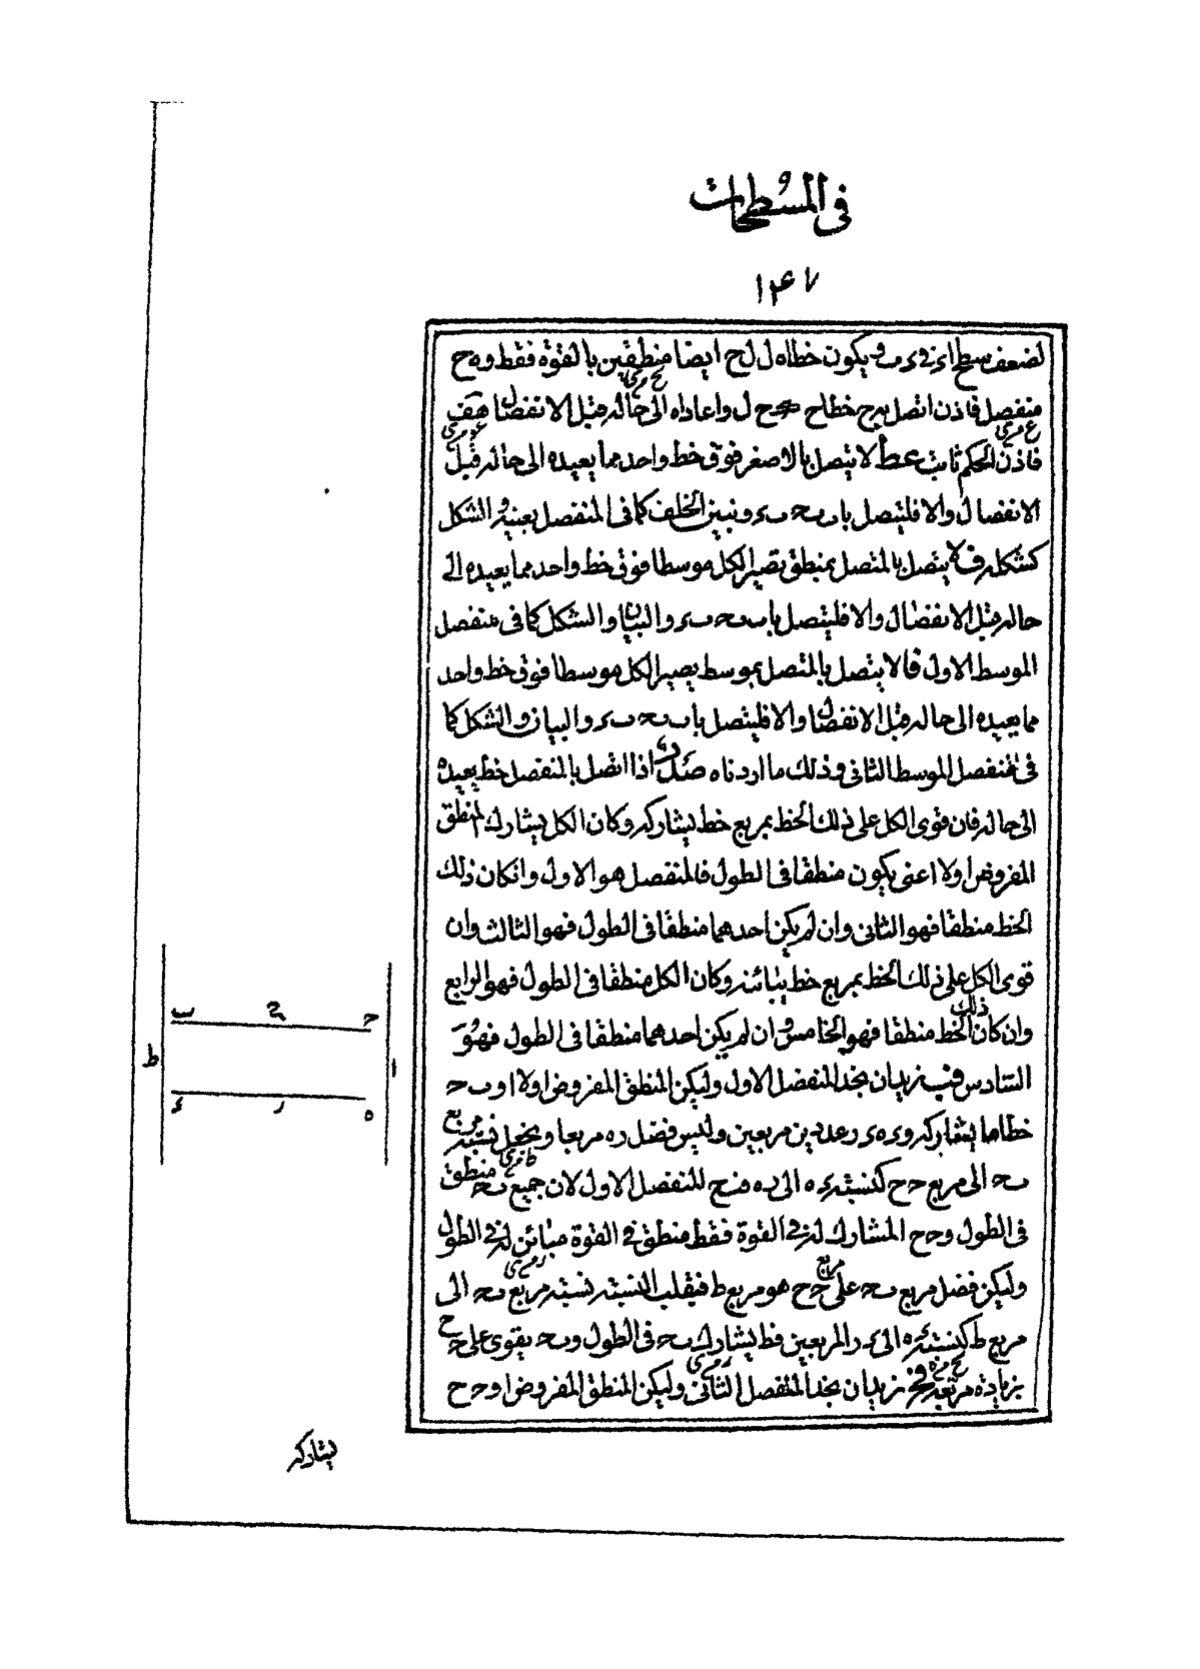 في المسطحات
١٤٧
لضعف سطح اء في ء ب ويكون خطا ه ل ل ح ايضا منطقين بالقوة فقط و ه ح
منفصل فاذن اتصل به ح خطا ح ل واعاداه الى حاله قبل الانفصال هف
فاذن الحكم ثابت عط لا يتصل بالاصغر فوق خط واحد مما يعيده الى حاله قبل
الانفصال والا فليتصل باب ب ح ب ء ونبين الخلف كما في المنفصل بعينه والشكل
كشكله ف لا يتصل بالمتصل بمنطق تصير الكل موسطا فوق خط واحد مما يعيده الى
حاله قبل الانفصال والا فليتصل باب ب ح ب ء والبيان والشكل كما في منفصل
الموسط الاول فا لا يتصل بالمتصل بموسط يصير الكل موسطا فوق خط واحد
مما يعيده الى حاله قبل الانفصال والا فليتصل باب ب ح ب ء والبيان والشكل كما
في المنفصل الموسط الثاني وذلك ما اردناه صدر اذا اتصل بالمنفصل خط يعيده
الى حاله فان قوى الكل على ذلك الخط بمربع خط يشاركه وكان الكل يشارك المنطق
المفروض اولا اعني يكون منطقا في الطول فالمنفصل هو الاول وان كان ذلك
الخط منطقا فهو الثاني وان لم يكن احدهما منطقا في الطول فهو الثالث وان
قوى الكل على ذلك الخط بمربع خط يبائنه وكان الكل منطقا في الطول فهو الرابع
وان كان ذلك الخط منطقا فهو الخامس وان لم يكن احدهما منطقا في الطول فهو
السادس فب نريد ان نجد المنفصل الاول وليكن المنطق المفروض اولا ا و ب ح
خطا ما يشاركه و ء ه ء ر عددين مربعين وليس فضل ر ه مربعا ونجعل نسبة مربع
ب ح الى مربع ح ح كنسبة ء ه الى ر ه فب ح المنفصل الاول لان جميع ب ح منطق
في الطول و ح ح المشارك له في القوة فقط منطق في القوة مبائن له في الطول
وليكن فضل مربع ب ح على مربع ح ح هو مربع ط فبقلب النسبة نسبة مربع ب ح الى
مربع ط كنسبة ء ه الى ء ر المربعين فط يشارك ب ح في الطول و ب ح يقوى على ح ح
بزيادة مربعه فج نريد ان نجد المنفصل الثاني وليكن المنطق المفروض ا و ح ح
يشاركه
ب ح ح
ط ا
ء ر ه